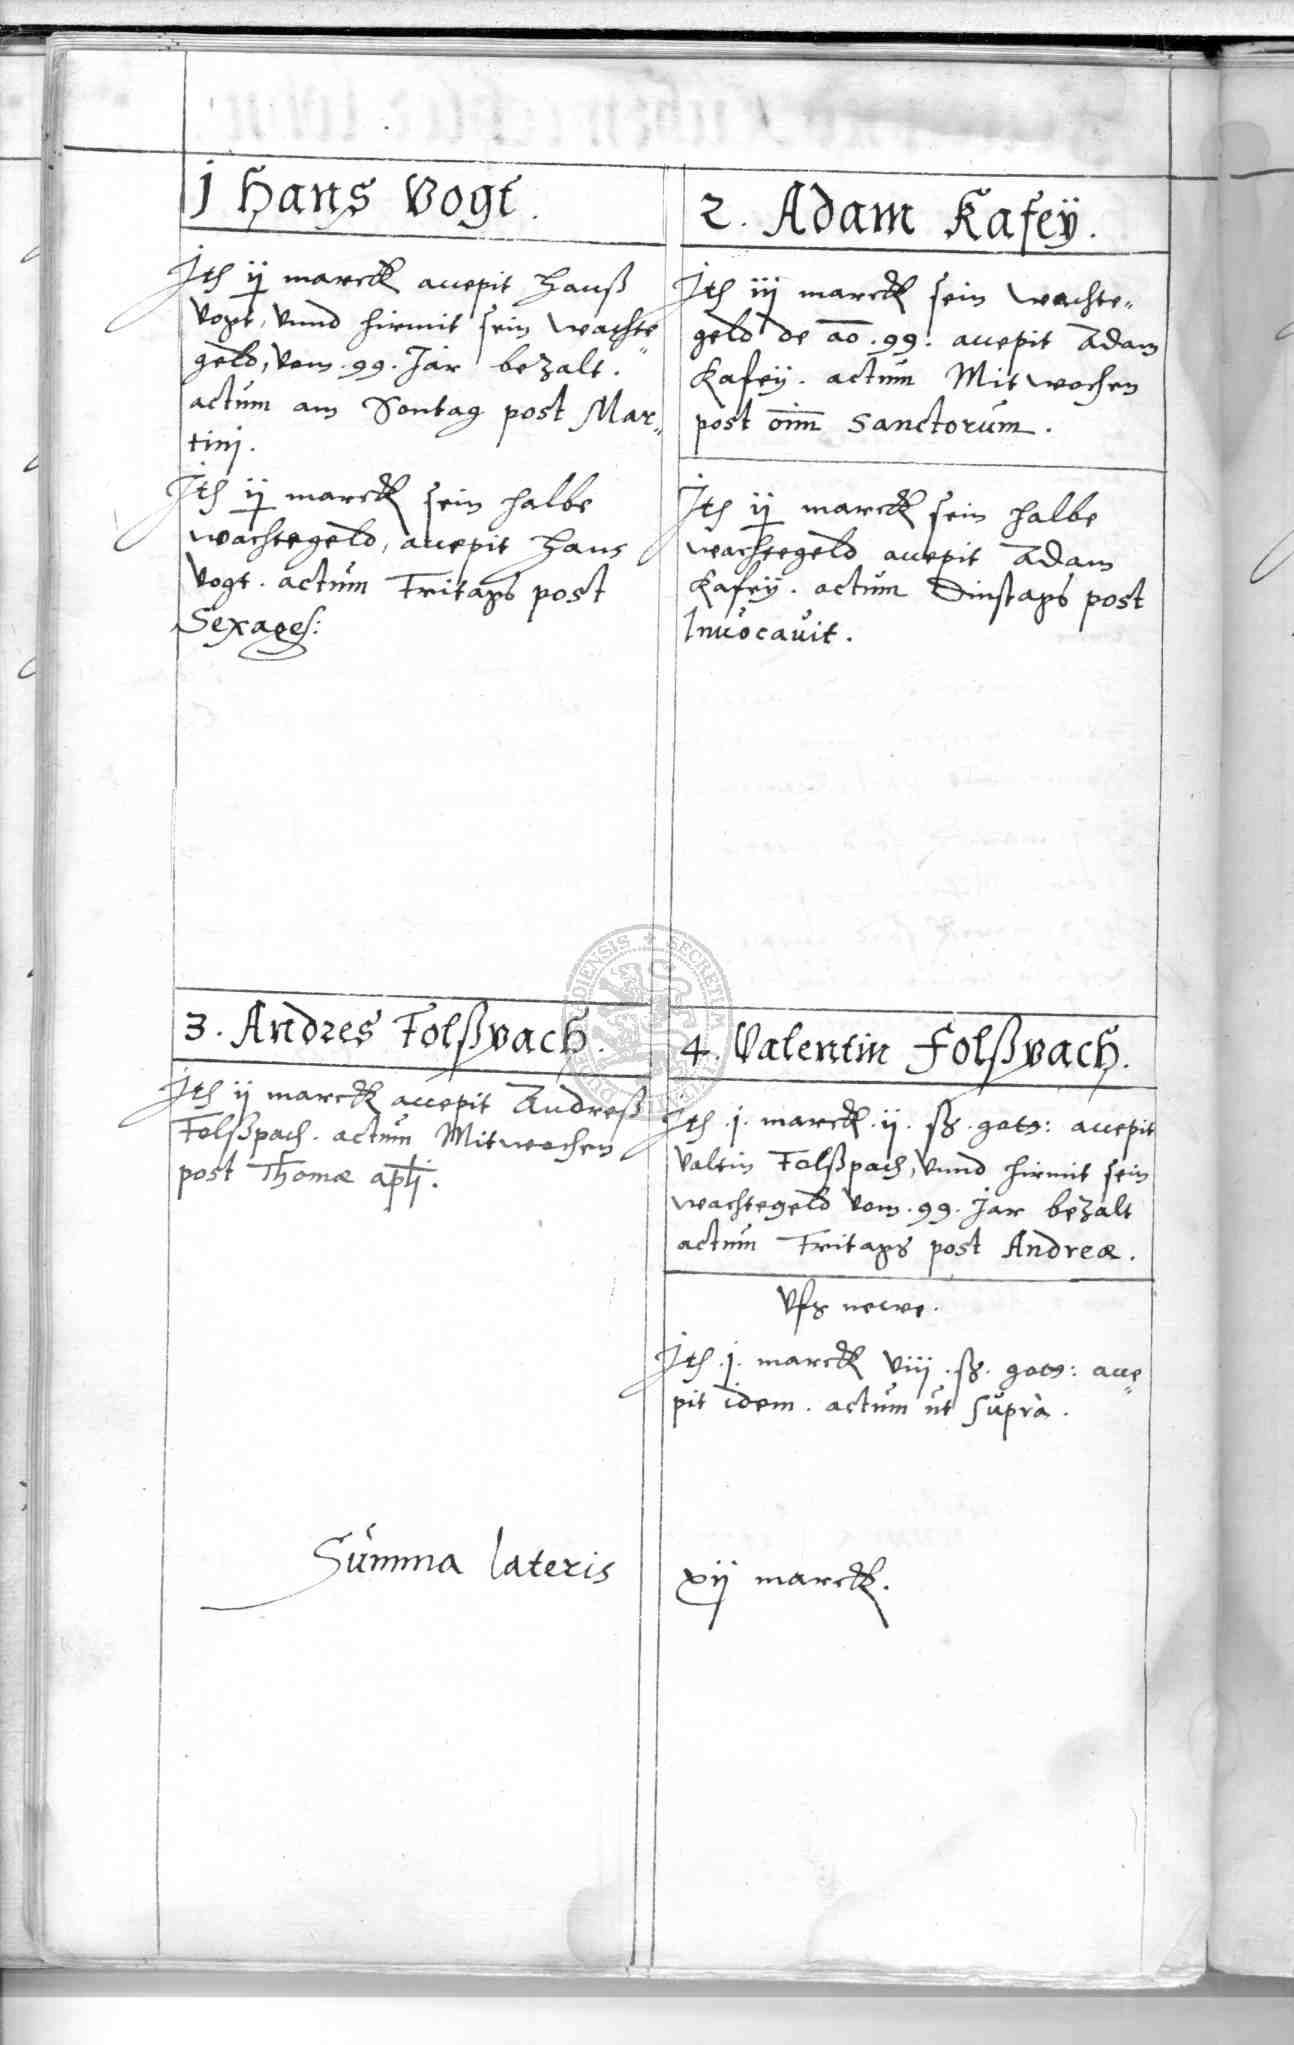 j Hans Vogt.
Ith ij marck accepit Hanß
Vogt, vnnd hirmit sein wachte„
geld, vom .99. Jar bezalt.
actum am Sontag post Mar„
tinj.
Ith ij marck sein halbe
wachtegeld, accepit Hans
Vogt. actum Fritags post
Sexages:
2. Adam Kafeÿ.
Ith iij marck sein wachte„
geld de ao .99: accepit Adam
Kafeÿ. actum Mitwochen
post oim Sanctorum.
Ith ij marck sein halbe
wachtegeld accepit Adam
Kafeÿ. actum Dinstags post
Inuocauit.
3. Andres Folßbach.
Ith ij marck accepit Andreß
Folßpach. actum Mitwochen
post Thomæ aptj.
4. Valentin Folßbach.
Ith .j. marck .ij. ß. gots: accepit
Valtin Folßpach, vnnd hirmit sein
wachtegeld vom .99. Jar bezalt
actum Fritags post Andreæ.
Vfs newe.
Ith .j. marck viij .ß. gots: acce„
pit idem. actum ut suprà.
Summa lateris xij marck.